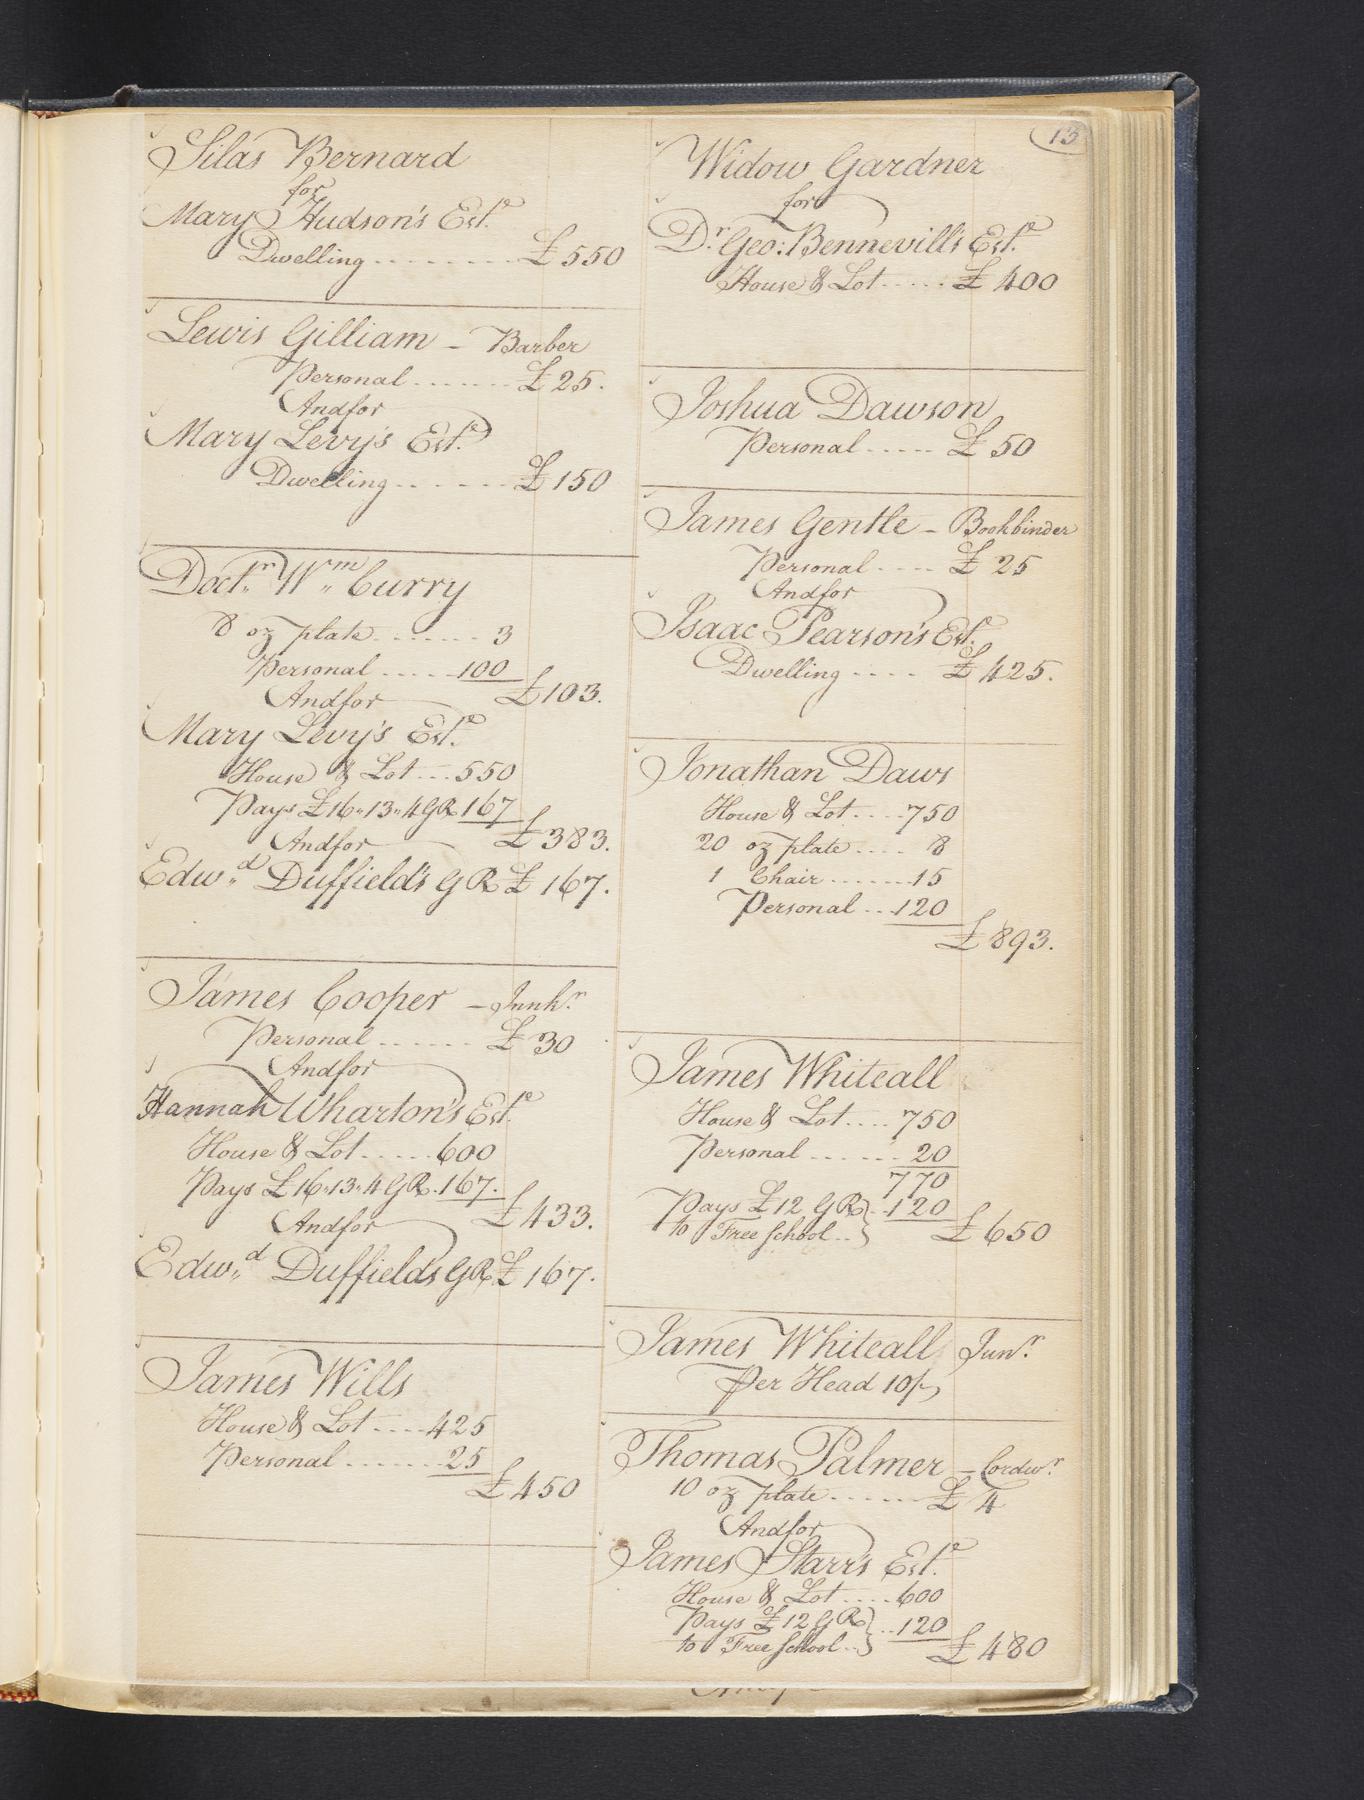 13
Silas Bernard
for
Mary Hudson's Est.e
Dwelling ......... £ 550
Lewis Gilliam – Barber
Personal ....... £ 25.
And for
Mary Levy's Est.e
Dwelling ...... £ 150
Doct.r W.m Curry
8 oz plate ....... 3
Personal .... 100
£ 103.
And for
Mary Levy's Est.e
House & Lot ... 550
Pays £ 16"13"4 GR 167
£ 383.
And for
Edw.d Duffield's GR £ 167.
James Cooper – Innk.r
Personal ...... £ 30
And for
Hannah Wharton's Est.e
House & Lot ..... 600
Pays £ 16"13"4 GR. 167.
£ 433.
And for
Edw.d Duffields GR. £ 167.
James Wills
House & Lot .... 425
Personal ....... 25
£ 450
Widow Gardner
for
D.r Geo: Bennevill's Est.e
House & Lot ..... £ 400
Joshua Dawson
Personal ..... £ 50
James Gentle – Bookbinder
Personal .... £ 25
And for
Isaac Pearson's Est.e
Dwelling .... £ 425.
Jonathan Daws
House & Lot .... 750
20 oz plate .... 8
1 Chair ....... 15
Personal ... 120
£ 893.
James Whiteall
House & Lot .... 750
Personal ...... 20
770
Pays £ 12 GR } .. 120
to Free School .. }
£ 650
James Whiteall Jun.r
Per Head 10/-
Thomas Palmer – Cordw.r
10 oz plate ...... £ 4
And for
James Starr's Est.e
House & Lot .... 600
Pays £ 12 GR } .. 120
to Free School .. }
£ 480